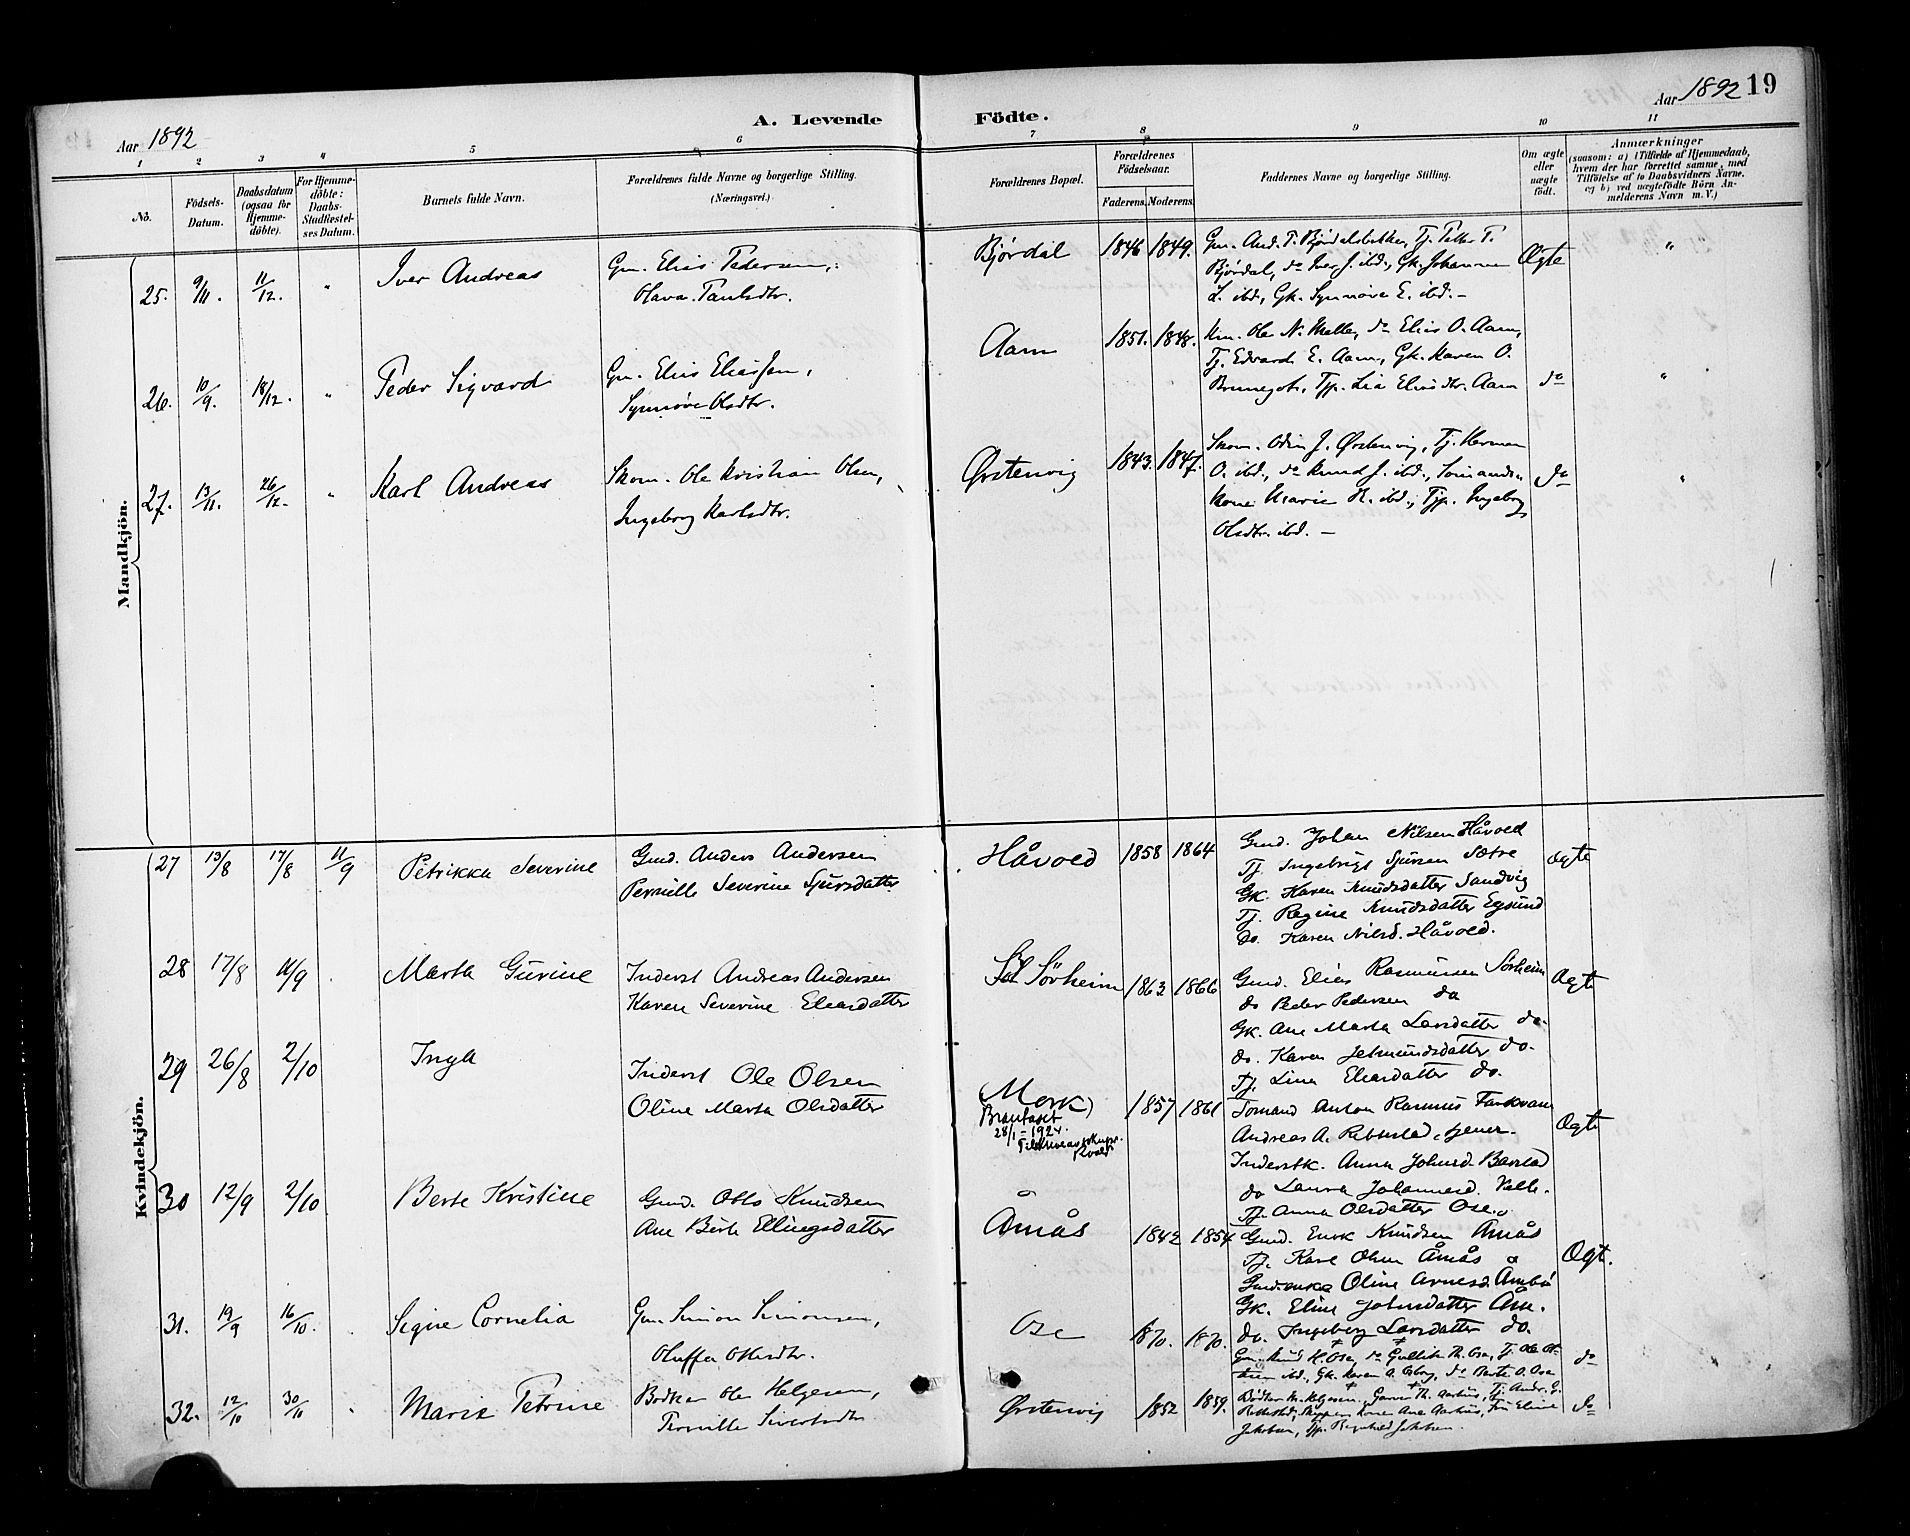 Aar 1892
A. Levende Födte.
Aar 1892 19
1 2 3 4 5 6 7 8 9 10 11
No.
Födsels-
Datum.
Daabsdatum
(ogsaa for
Hjemme-
döbte).
For Hjemme-
döbte:
Daabs-
Stadfæstel-
ses Datum.
Barnets fulde Navn.
Forældrenes fulde Navne og borgerlige Stilling.
(Næringsvei.)
Forældrenes Bopæl.
Forældrenes
Födselsaar.
Faderens. Moderens.
Faddernes Navne og borgerlige Stilling.
Om ægte
eller
uægte
födt.
Anmærkninger
(saasom: a) i Tilfælde af Hjemmedaab,
hvem der har forrettet samme, med
Tilföielse af to Daabsvidners Navne,
og b) ved uægtefödte Börn An-
melderens Navn m. V.)
Mandkjön.
25. 9/11. 11/12. " Iver Andreas
Gm. Elias Pedersen,
Olava Paulsdtr.
Bjørdal 1846 1849.
Gm. And. P. Bjørdalsbakken, Tj. Peder P.
Bjørdal, do Iver J. ibd., Gk. Johanne
L. ibd., Gk. Synnøve E. ibd. -
Ægte "
26. 10/9. 18/12. " Peder Sigvard
Gm. Elias Eliassen,
Synnøve Olsdtr.
Aam 1851. 1848.
Km. Ole N. Melle, do Elias O. Aam,
Tj. Edvard E. Aam, Gk. Karen O.
Brunegot, Tjp. Lia Eliasdtr. Aam
do "
27. 13/11. 26/12. " Karl Andreas
Skom. Ole Kristian Olsen,
Ingeborg Karlsdtr.
Ørstenvig 1843. 1847.
Skom. Odin J. Ørstenvig, Tj. Herman
O. ibd., do Knud J. ibd., Tømands
Kone Marie H. ibd., Tjp. Ingeborg
Olsdtr. ibd. -
do "
Kvindekjön.
27 13/8 17/8 11/9 Petrikka Severine
Gmd. Anders Andersen
Pernille Severine Sjursdatter
Håvold 1858 1864
Gmd. Johan Nilsen Håvold
Tj. Ingebrigt Sjursen Sætre
Gk. Karen Knudsdatter Sandvig
Tj. Regine Knudsdatter Egsund
do. Karen Nilsd. Håvold.
Ægte
28 17/8 11/9 Marta Gurine
Inderst Andreas Andersen
Karen Severine Eliasdatter
Sörheim 1863 1866
Gmd. Elias Rasmussen Sörheim
do Peder Pedersen do
Gk. Ane Marta Larsdatter do.
do. Karen Jetmundsdatter do.
Tj. Lina Eliasdatter do.
Ægte
29 26/8 2/10 Inga
Inderst Ole Olsen
Oline Marta Olsdatter
Mork
28/1-1924.
1857 1861
Tomand Anton Rasmus
Andreas A. Rebbestad, tjener.
Inderstk. Anna Johnsd. Barstad
do Laura Johannesd. Velle.
Tj. Anna Olsdatter Ose.
Ægte
30 12/9 2/10 Berte Kristine
Gmd. Otto Knudsen
Ane Berte Ellingsdatter
Åmås 1842 1854
Gmd. Enok Knudsen Åmås
Tj. Karl Olsen Åmås
Gmd.enke Oline Arnesd. Åmbö
Gk. Eline Johnsdatter Åm.
do. Ingeborg Larsdatter do.
Ægt.
31. 19/9 16/10. Signe Cornelia
Gm. Simon Simonsen,
Oluffa Olesdtr.
Ose 1870. 1870.
Gm. Knud K. Ose, do Gullik Th. Ose, Tj. Ole
ibd., Gk. Karen A. do Berte O. Ose
do
32. 12/10 30/10 Marie Petrine
Bødker Ole Helgesen,
Pernille Siverts dtr
Ørstenvig 1852 1859.
Bødker K. Helgesen, Garver Th. Aarhus, Tj. Andr. G.
Rebbestad, Skippers Kone Ane Aarhus, Frk Eline
Jakobsen, Tjp. Ragnhild Jakobsen.
do